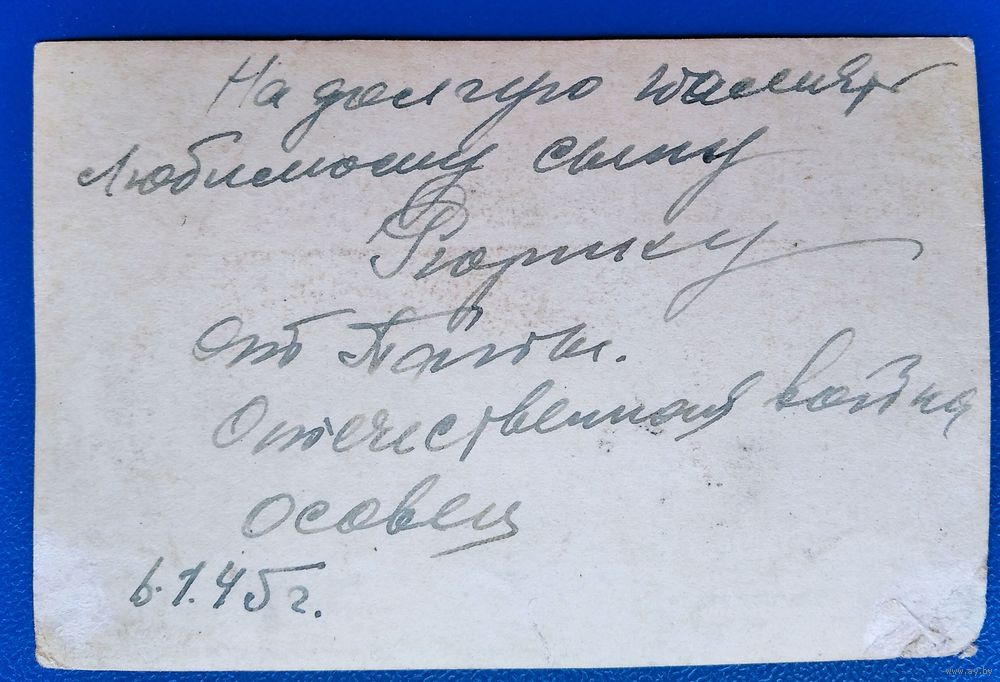 На долгую память
Любимому сыну
Рюрику
от Папы.
Отечественная война
Осовец
6.1.45г.
www.ay.by